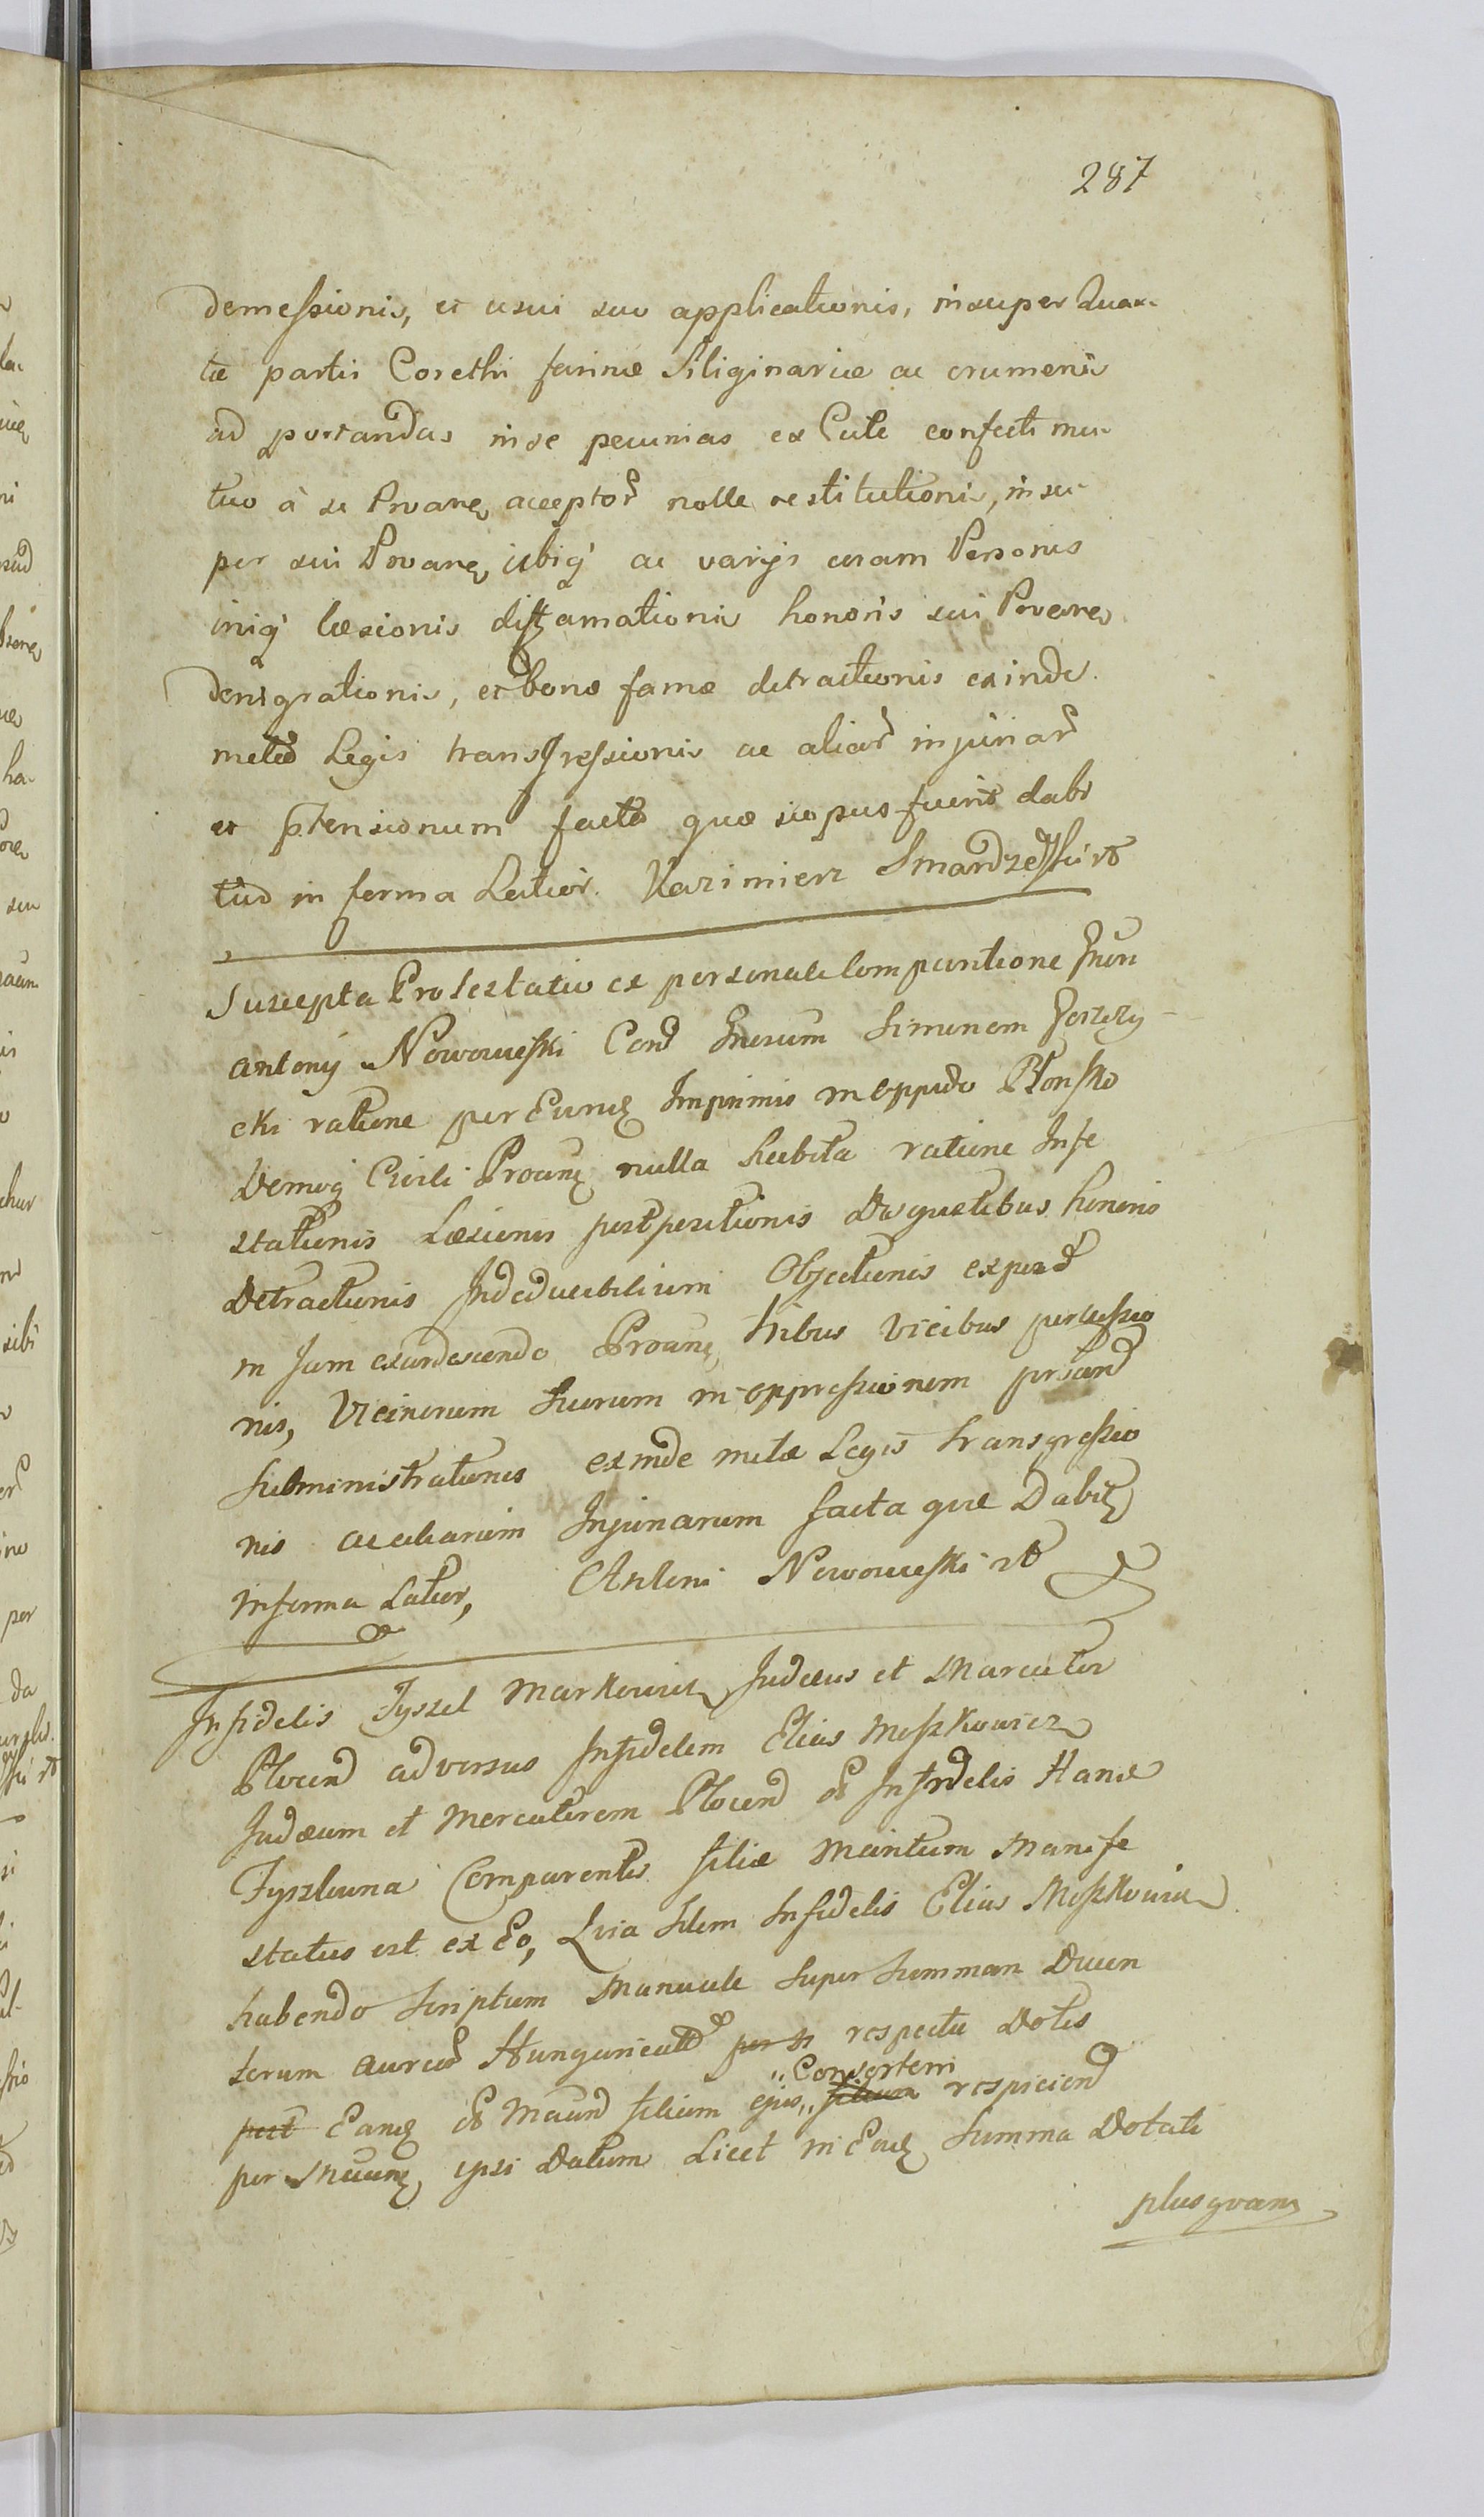 287
demessionis, et usui suo applicationis, insuper Quar-
tæ partis Corethi farinæ Siliginariæ ac crumenis
ad portandas in se pecunias ex Cute confecti mu-
tuo à se Proane acceptor nolle restitutionis, insu-
per sui Proane ubiq ac varijs coram Personis
iniq læsionis diffamationis honoris sui Proane
denigrationis, et bonæ famæ detractionis exinde
metæ Legis transgressionis ac aliar injuriar
et ptensionum facto quæ si opus fuerit dabi
tur in forma Latior. Kazimierz Smardzewski rt
Suscepta Protestatio ex personali Comparitione Gnosi
Antonij Nowowieski Cond Gnosum Simonem
cki ratione per Eunq Imprimis in oppido Płonsko
Domoq Civili Proane nulla habita ratione Infe
stationis Læsionis postpositionis Disgustibus honoris
Detractionis Indeducibilium Objectionis expost
in Jam exardescendo Proane tribus vicibus percussio
nis, Vicinorum Suorum in oppressionem
Subministrationis exinde metæ Legis transgressio
nis ac aliarum Injuriarum facta quæ Dabit
in forma Latior, Antoni Nowowieski rt
Infidelis Jyszel Markowicz Judæus et Marcator
Plocend adversus Infidelem Elias Moszkowicz
Judæum et Mercatorem Plocend et Infidelis Hanæ
Jyszlowna Comparentis filiæ Maritum Manife
status est ex Eo, Quia Idem Infidelis Elias Moszkowicz
habendo Scriptum Manuale Super Summam Ducen
torum aureor Hungaricali per respectu Dotis
post Eanq et Maund filium ejus, filium „Consortem respiciend
per Maunq ipsi Datum Licet in Eaq Summa Dotali
plusquam